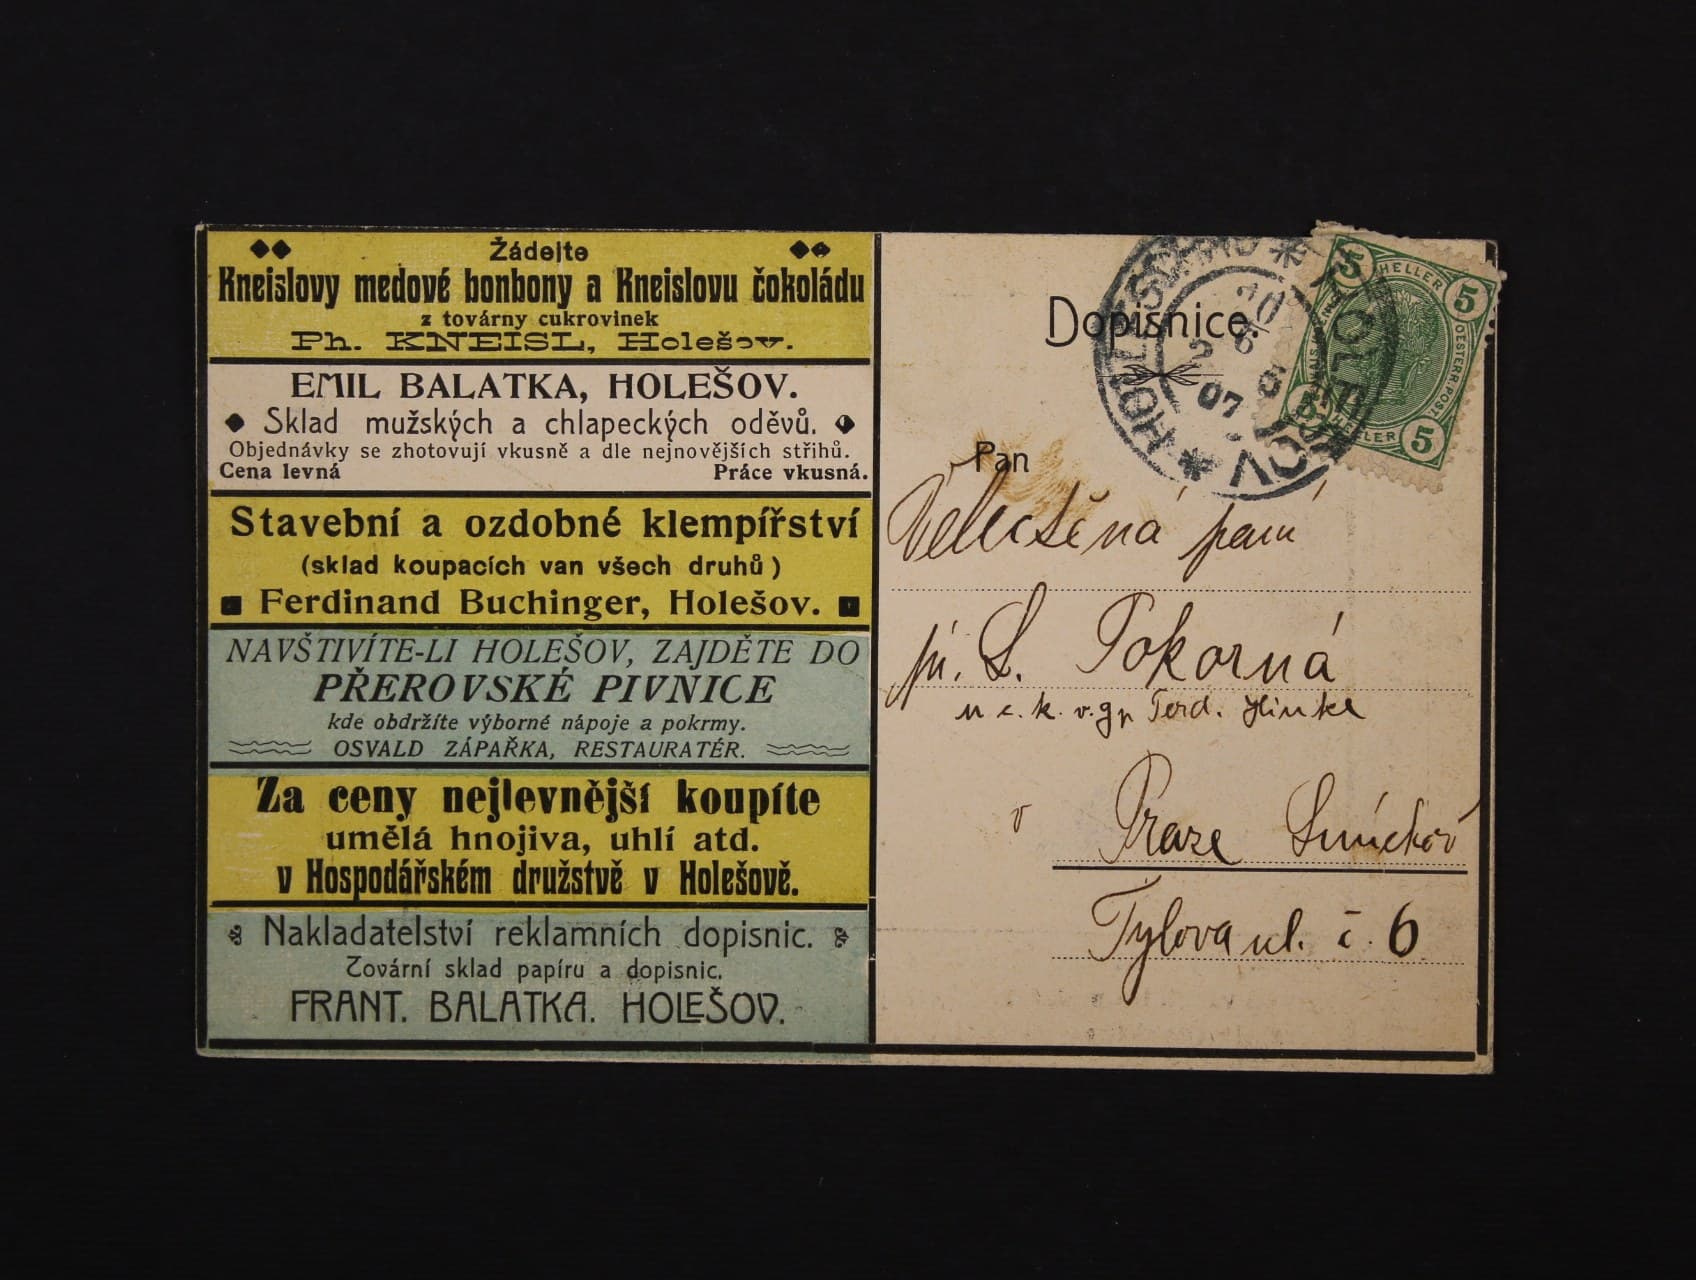 Žádejte
Kneislovy medové bonbony a Kneislovu čokoládu
z továrny cukrovinek
Ph. KNEISL, Holešov.
EMIL BALATKA, HOLEŠOV.
Sklad mužských a chlapeckých oděvů.
Objednávky se zhotovují vkusně a dle nejnovějších střihů.
Cena levná Práce vkusná.
Stavební a ozdobné klempířství
(sklad koupacích van všech druhů)
Ferdinand Buchinger, Holešov.
NAVŠTIVÍTE-LI HOLEŠOV, ZAJDĚTE DO
PŘEROVSKÉ PIVNICE
kde obdržíte výborné nápoje a pokrmy.
OSVALD ZÁPAŘKA, RESTAURATÉR.
Za ceny nejlevnější koupíte
umělá hnojiva, uhlí atd.
v Hospodářském družstvě v Holešově.
Nakladatelství reklamních dopisnic.
Tovární sklad papíru a dopisnic.
FRANT. BALATKA. HOLEŠOV.
Dopisnice.
HOLESCHAU * HOLEŠOV *
07
5 HELLER 5
OESTERR·POST·
HELLER 5
Pan
Velectěná paní
L. Pokorná
Ferd.
v Praze Smíchov
Tylova ul. č. 6